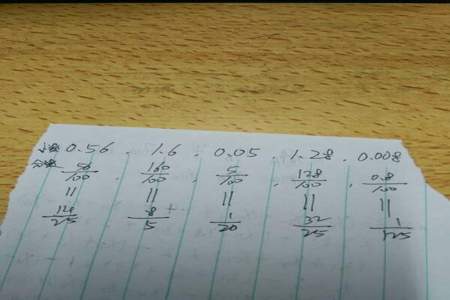 小数 0.56 . 1.6 . 0.05 . 1.28 . 0.008
分数 56/100 . 160/100 . 5/100 . 128/100 . 0.8/100
|| || || || ||
14/25 8/5 1/20 32/25 1/125